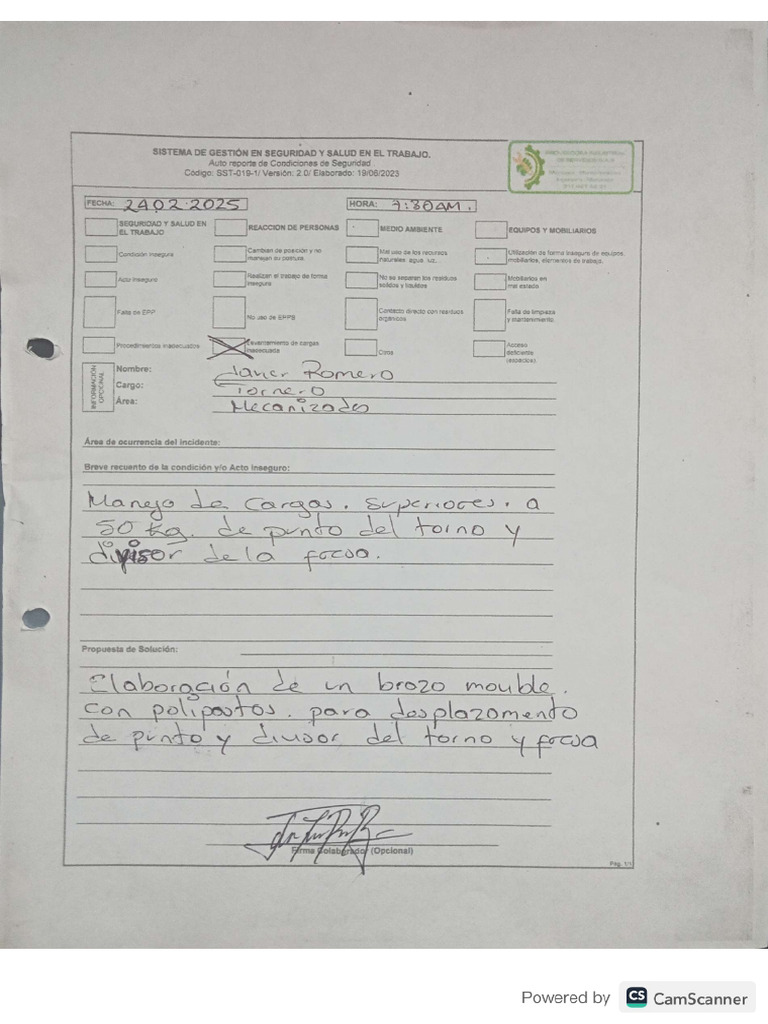 SISTEMA DE GESTIÓN EN SEGURIDAD Y SALUD EN EL TRABAJO.
Auto reporte de Condiciones de Seguridad
Código: SST-019-1/ Versión: 2.0/ Elaborado: 19/06/2023
FECHA: 24.02.2025 HORA: 7:30AM.
SEGURIDAD Y SALUD EN EL TRABAJO
REACCION DE PERSONAS
MEDIO AMBIENTE
EQUIPOS Y MOBILIARIOS
Condición insegura
Cambian de posición y no manejan su postura.
Mal uso de los recursos naturales agua luz.
Utilización de forma insegura de equipos, mobiliarios, elementos de trabajo.
Acto Inseguro
Realizan el trabajo de forma insegura
No se separan los residuos solidos y liquidos
Mobiliarios en mal estado
Falta de EPP
No uso de EPPS
Contacto directo con residuos orgánicos
Falta de limpieza y mantenimiento.
Procedimientos inadecuados
Levantamiento de cargas inadecuada
Otros
Acceso deficiente (espacios)
INFORMACIÓN OPCIONAL
Nombre: Javier Romero
Cargo: Tornero
Área: Mecanizados
Área de ocurrencia del incidente:
Breve recuento de la condición y/o Acto Inseguro:
Manejo de cargas. superiores. a
50 kg. de punto del torno y
divisor de la fresa.
Propuesta de Solución:
Elaboración de un brazo mouble.
con polipastos. para desplazamento
de punto y divisor del torno y fresa
Firma Colaborador (Opcional)
Pág. 1/1
Powered by CS CamScanner